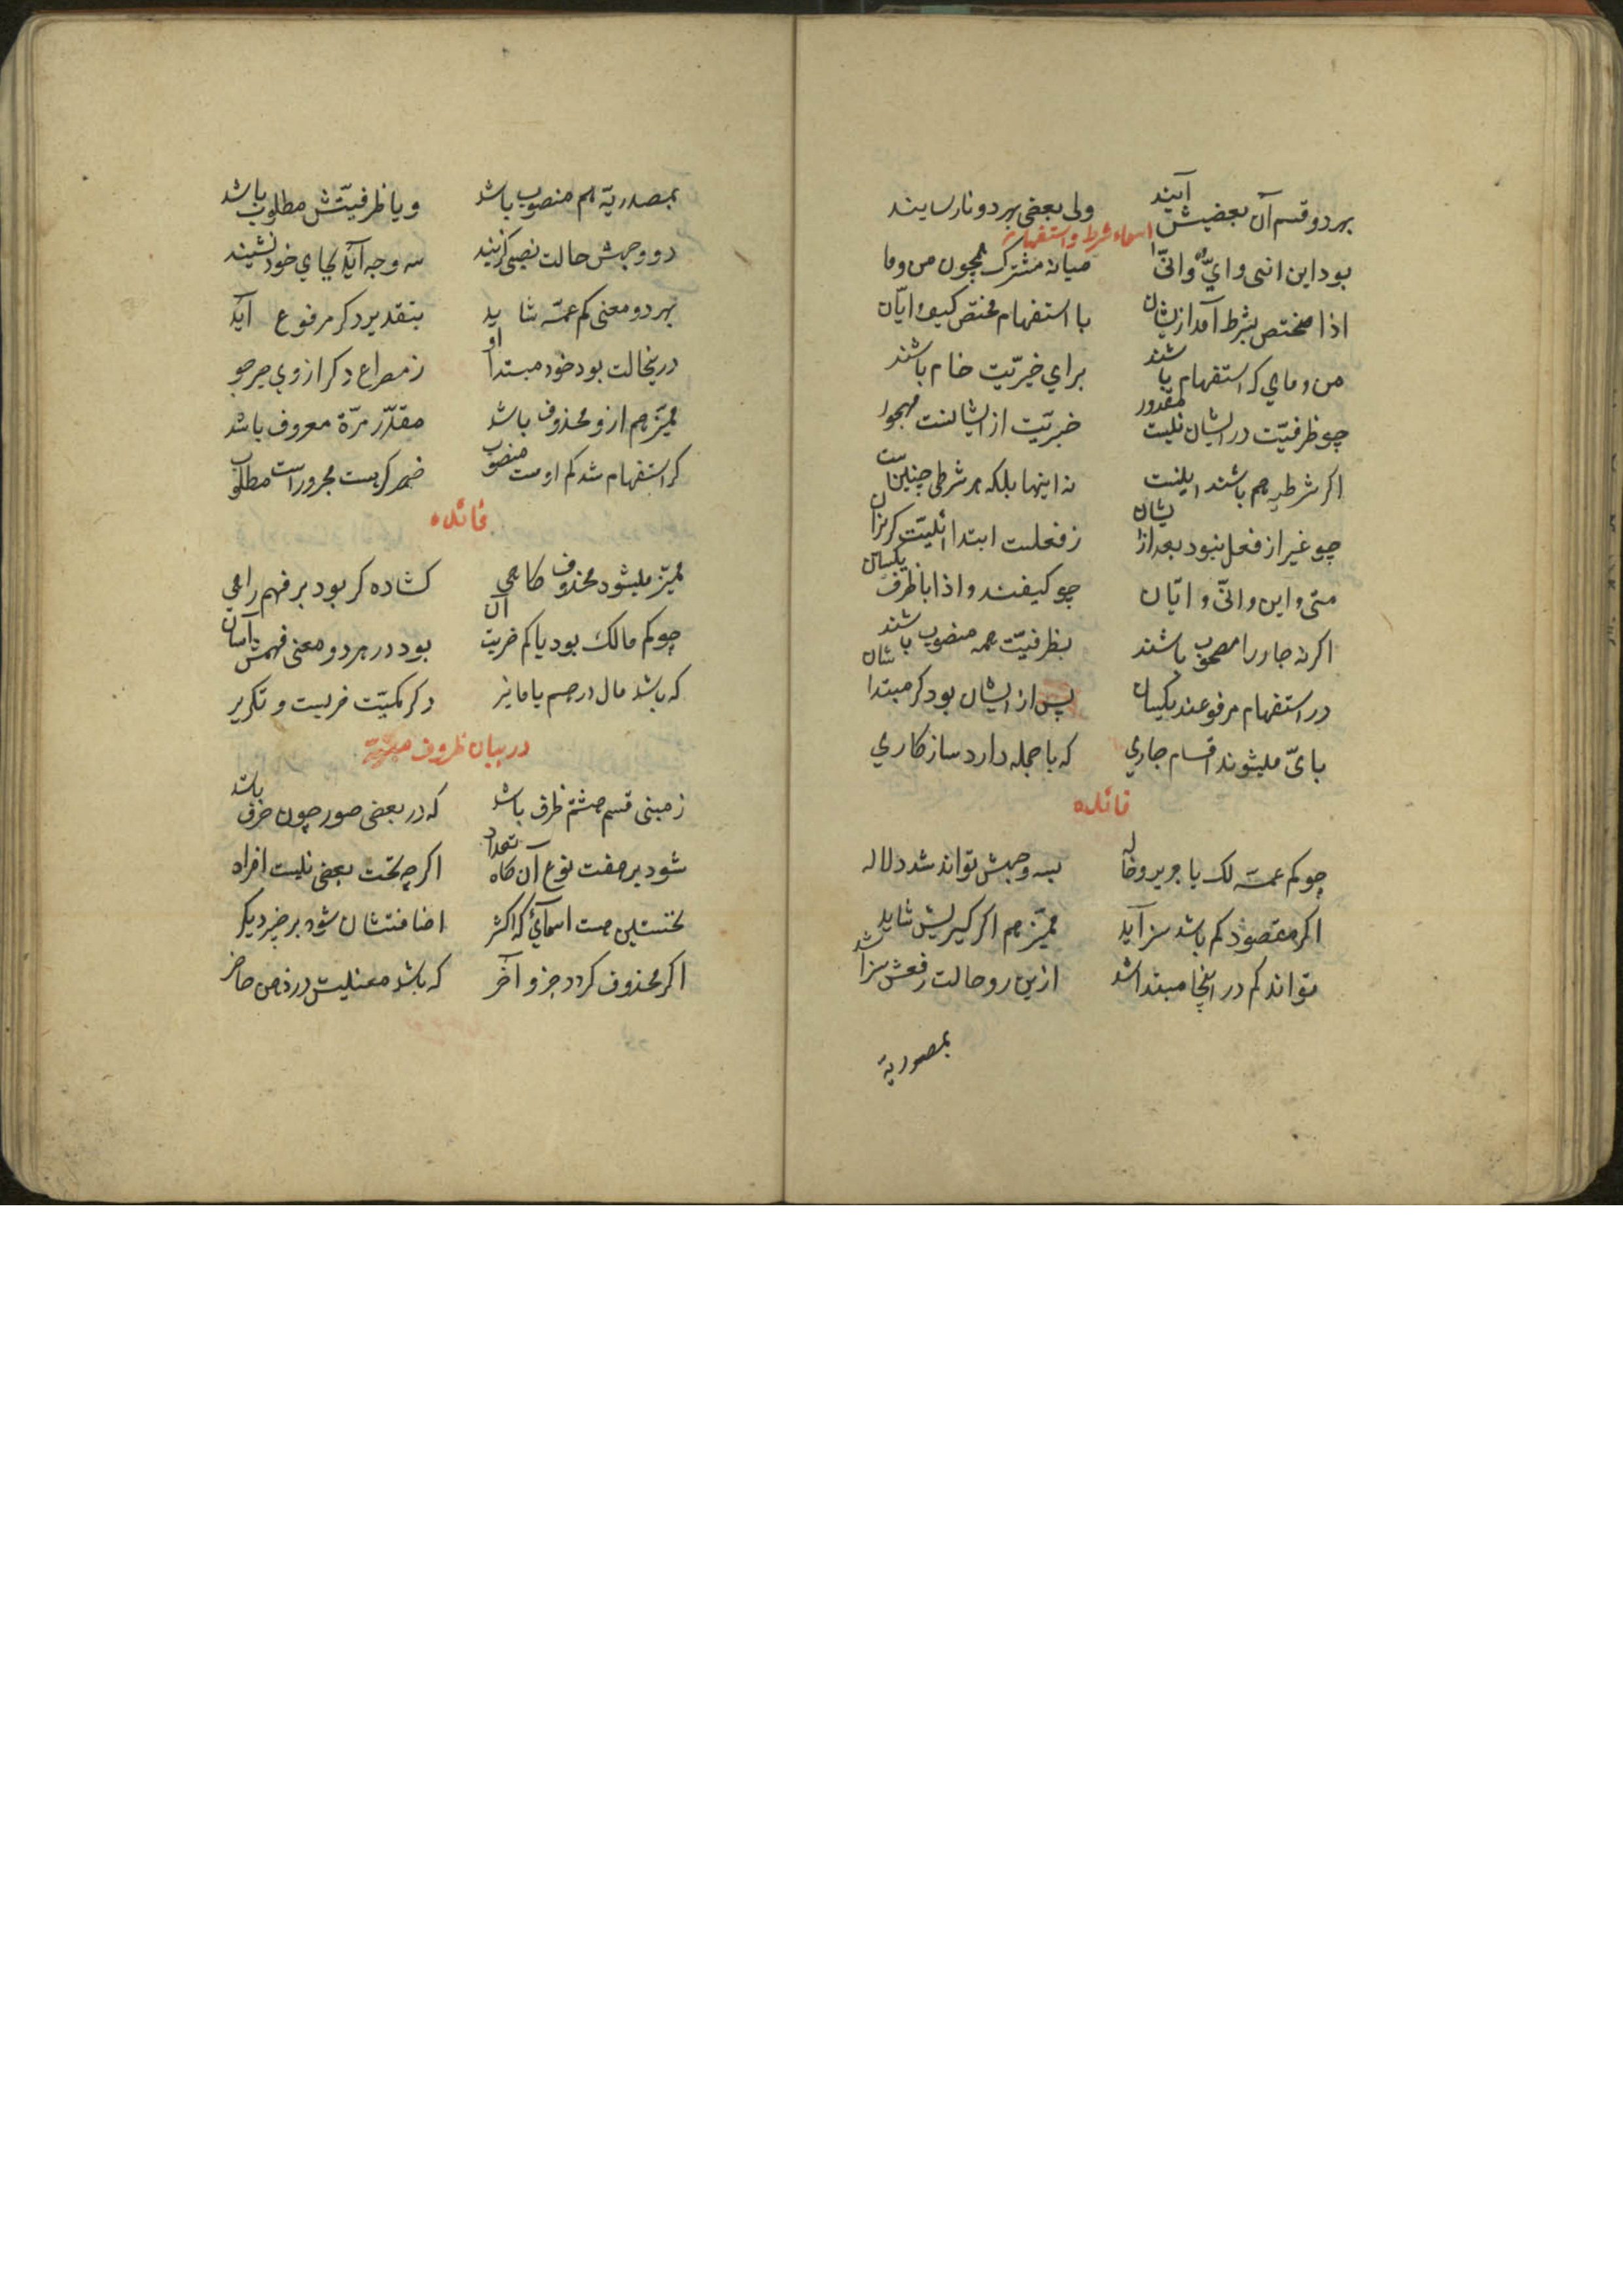 بهر دو قسم آن بعضیش آیند ولی بعضی بهر دو نارسایند
اسماء شرط و استفهام
بود این انی و ایّ و انّی میانه مشترک همچون من وما
اذا مختص بشرط آمد ازیشان با استفهام مختص کیف و ایّان
من و مای که استفهام باشند برای خبریّت خام باشند
چو ظرفیّت در ایشان نیست مقدور خبریّت از ایشانست مهجور
اکر شرطیه هم باشند اینست نه اینها بلکه هر شرطی چنین است
چو غیر از فعل نبود بعد ازیشان ز فعلیت ابتدائیّت کریزان
متی و این و انّی و ایّان چو کیفند و اذا با ظرف یکسان
اکر نه جار را مصحوب باشند بظرفیّت همه منصوب باشند
در استفهام مرفوعند یکسان پس از ایشان بود کر مبتدا شان
بایّ میشوند اقسام جاری که با جمله دارد سازکاری
فائده
چو کم عمة لک یا جریر و خاله بسه وجهش تواند شد دلاله
اکر مقصود کم باشد سزآید ممیّز هم اکر کیریش شاید
تواند کم در اینجا مبتدا شد ازین رو حالت رفعش سزا شد
بمصدریة
بمصدریّة هم منصوب باشد و یا ظرفیّتش مطلوب باشد
دو وجهش حالت نصبی کزیند سه وجه آید بجای خود نشیند
بهر دو معنی کم عمّة شاید بتقدیر دکر مرفوع آید
درینحالت بود خود مبتدا او ز مصراع دکر از وی خبر جو
ممیّز هم ازو محذوف باشد مقدّر مرّة معروف باشد
کر استفهام شد کم اوست منصوب خبر کر هست مجرور است مطلوب
فائده
ممیّز میشود محذوف کاهی کشاده کر بود بر فهم راهی
چو کم مالک بود یا کم ضربت آن بود در هر دو معنی فهمش آسان
که باشد مال درهم یا دکر کمیّت ضربست و تکریر
در بیان ظروف مبنیّة
ز مبنی قسم هشتم ظرف باشد که در بعضی صور چون حرف باشد
شود بر هفت نوع آن کاه تعداد اکرچه تحت بعضی نیست افراد
نخستین هست اسمائی که اکثر اضافتشان شود بر چیز دیکر
اکر محذوف کردد جزو آخر که باشد معنیش در ذهن حاضر